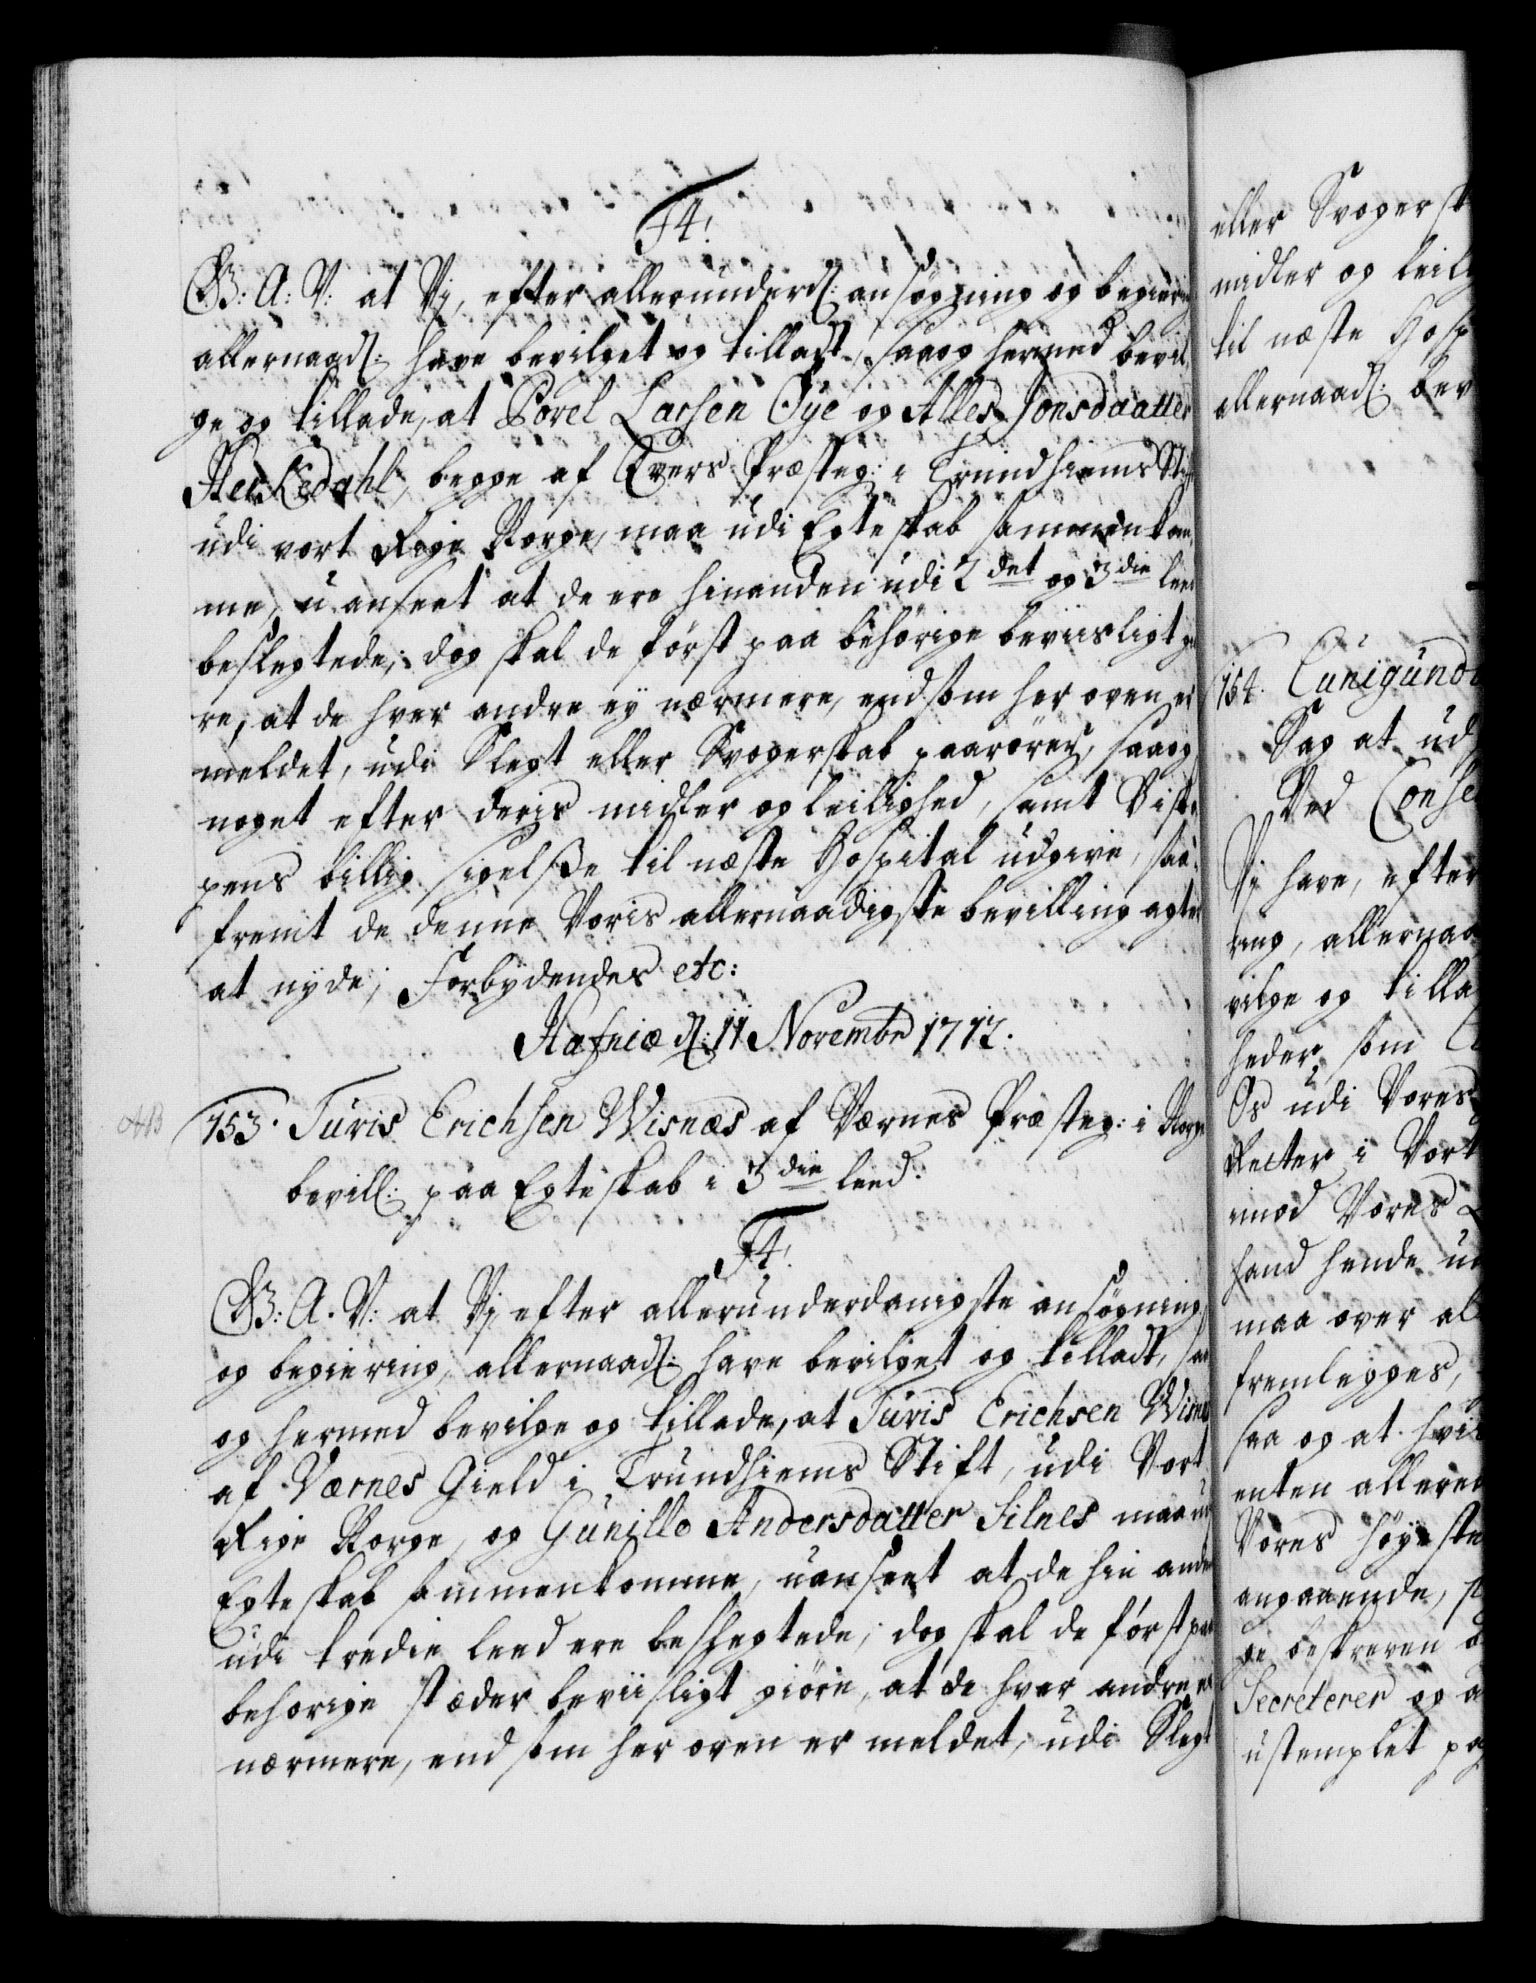 F4!
G: A: V: at Vj, efter allerunderd: ansögning og begiering
allernaad: have bevilget og tilladt, saa og hermed bevil
ge og tillade, at Povel Larsen Øye og Alles Jonsdaatter
Herkedahl, begge af Qvers Præsteg: i Trundhiems Stift
udi vort Rige Norge, maa udi Egteskab sammenkom
me, uanseet at de ere hinanden udi 2det og 3die leed
beslegtede; dog skal de först paa behörige beviisligt giö
re, at de hver andre ey nærmere, end som her oven er
meldet, udi Slegt eller Svogerskab paarörer, saa og
noget efter deris midler og leilighed, samt Biske
pens billig sigelsse til næste Hospital udgive, saa
fremt de denne Voris allernaadigste bevilling agter
at nyde; Forbydendes etc:
Hafniæ d: 11 Novembr 1712.
153. Turis Erichsen Wisnæs af Værnes Præsteg: i Norge
bevill: paa Egteskab i 3die leed.
F4!
G: A. V: at Vj efter allerunderdanigste ansögning
og begiering, allernaad: have bevilget og tilladt, saa
og hermed bevilge og tillade, at Turis Erichsen Wisnæs
af Værnes Gield i Trundhiems Stift, udi Vort
Rige Norge, og Gunille Andersdatter Silnes maa udi
Egteskab sammenkomme, uanseet at de hin anden
udi tredie leed ere beslegtede; dog skal de först paa
behörige stæder beviisligt giöre, at de hver andre ey
nærmere, end som her oven er meldet, udi Slegt
eller Svogersk
midler og leil
til næste Hosp
allernaad: bev
154. Cunigund
Sag at ud
Ved Conse
Vj have, efter
ring, allernaa
vilge og tilla
heder, som
Os udi Vores
Retter i Vort
imod Vores
hand hende ud
maa over al
fremlegges,
saa og at hvi
enten allered
Vores höyeste
angaaende, s
ge beskreven
Secreterer og a
ustemplet pa